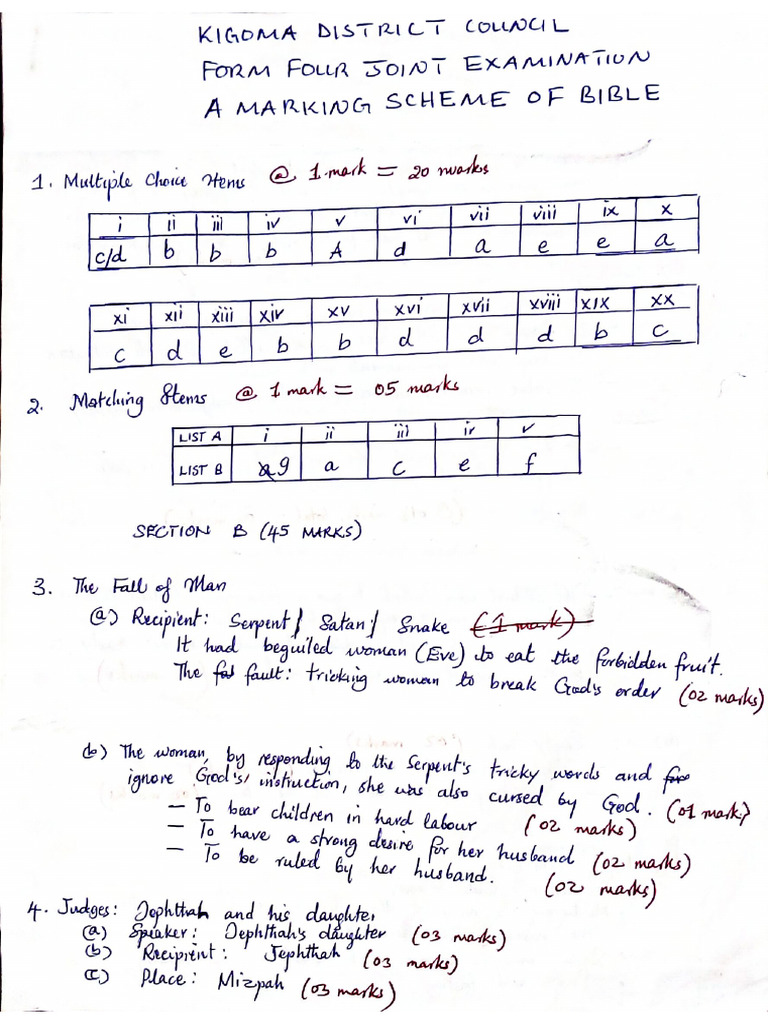 KIGOMA DISTRICT COUNCIL
FORM FOUR JOINT EXAMINATION
A MARKING SCHEME OF BIBLE
1. Multiple Choice Items @ 1 mark = 20 marks
i ii iii iv v vi vii viii ix x
c/d b b b A d a e e a
xi xii xiii xiv xv xvi xvii xviii xix xx
c d e b b d d d b c
2. Matching Items @ 1 mark = 05 marks
LIST A i ii iii iv v
LIST B g a c e f
SECTION B (45 MARKS)
3. The Fall of Man
(a) Recipient: Serpent/ Satan/ Snake (1 mark)
It had beguiled woman (Eve) to eat the forbidden fruit.
The fault: tricking woman to break God's order (02 marks)
(b) The woman, by responding to the Serpent's tricky words and
ignore God's instruction, she was also cursed by God. (01 mark)
– To bear children in hard labour (02 marks)
– To have a strong desire for her husband (02 marks)
– To be ruled by her husband. (02 marks)
4. Judges: Jephthah and his daughter
(a) Speaker: Jephthah's daughter (03 marks)
(b) Recipient: Jephthah (03 marks)
(c) Place: Mizpah (03 marks)